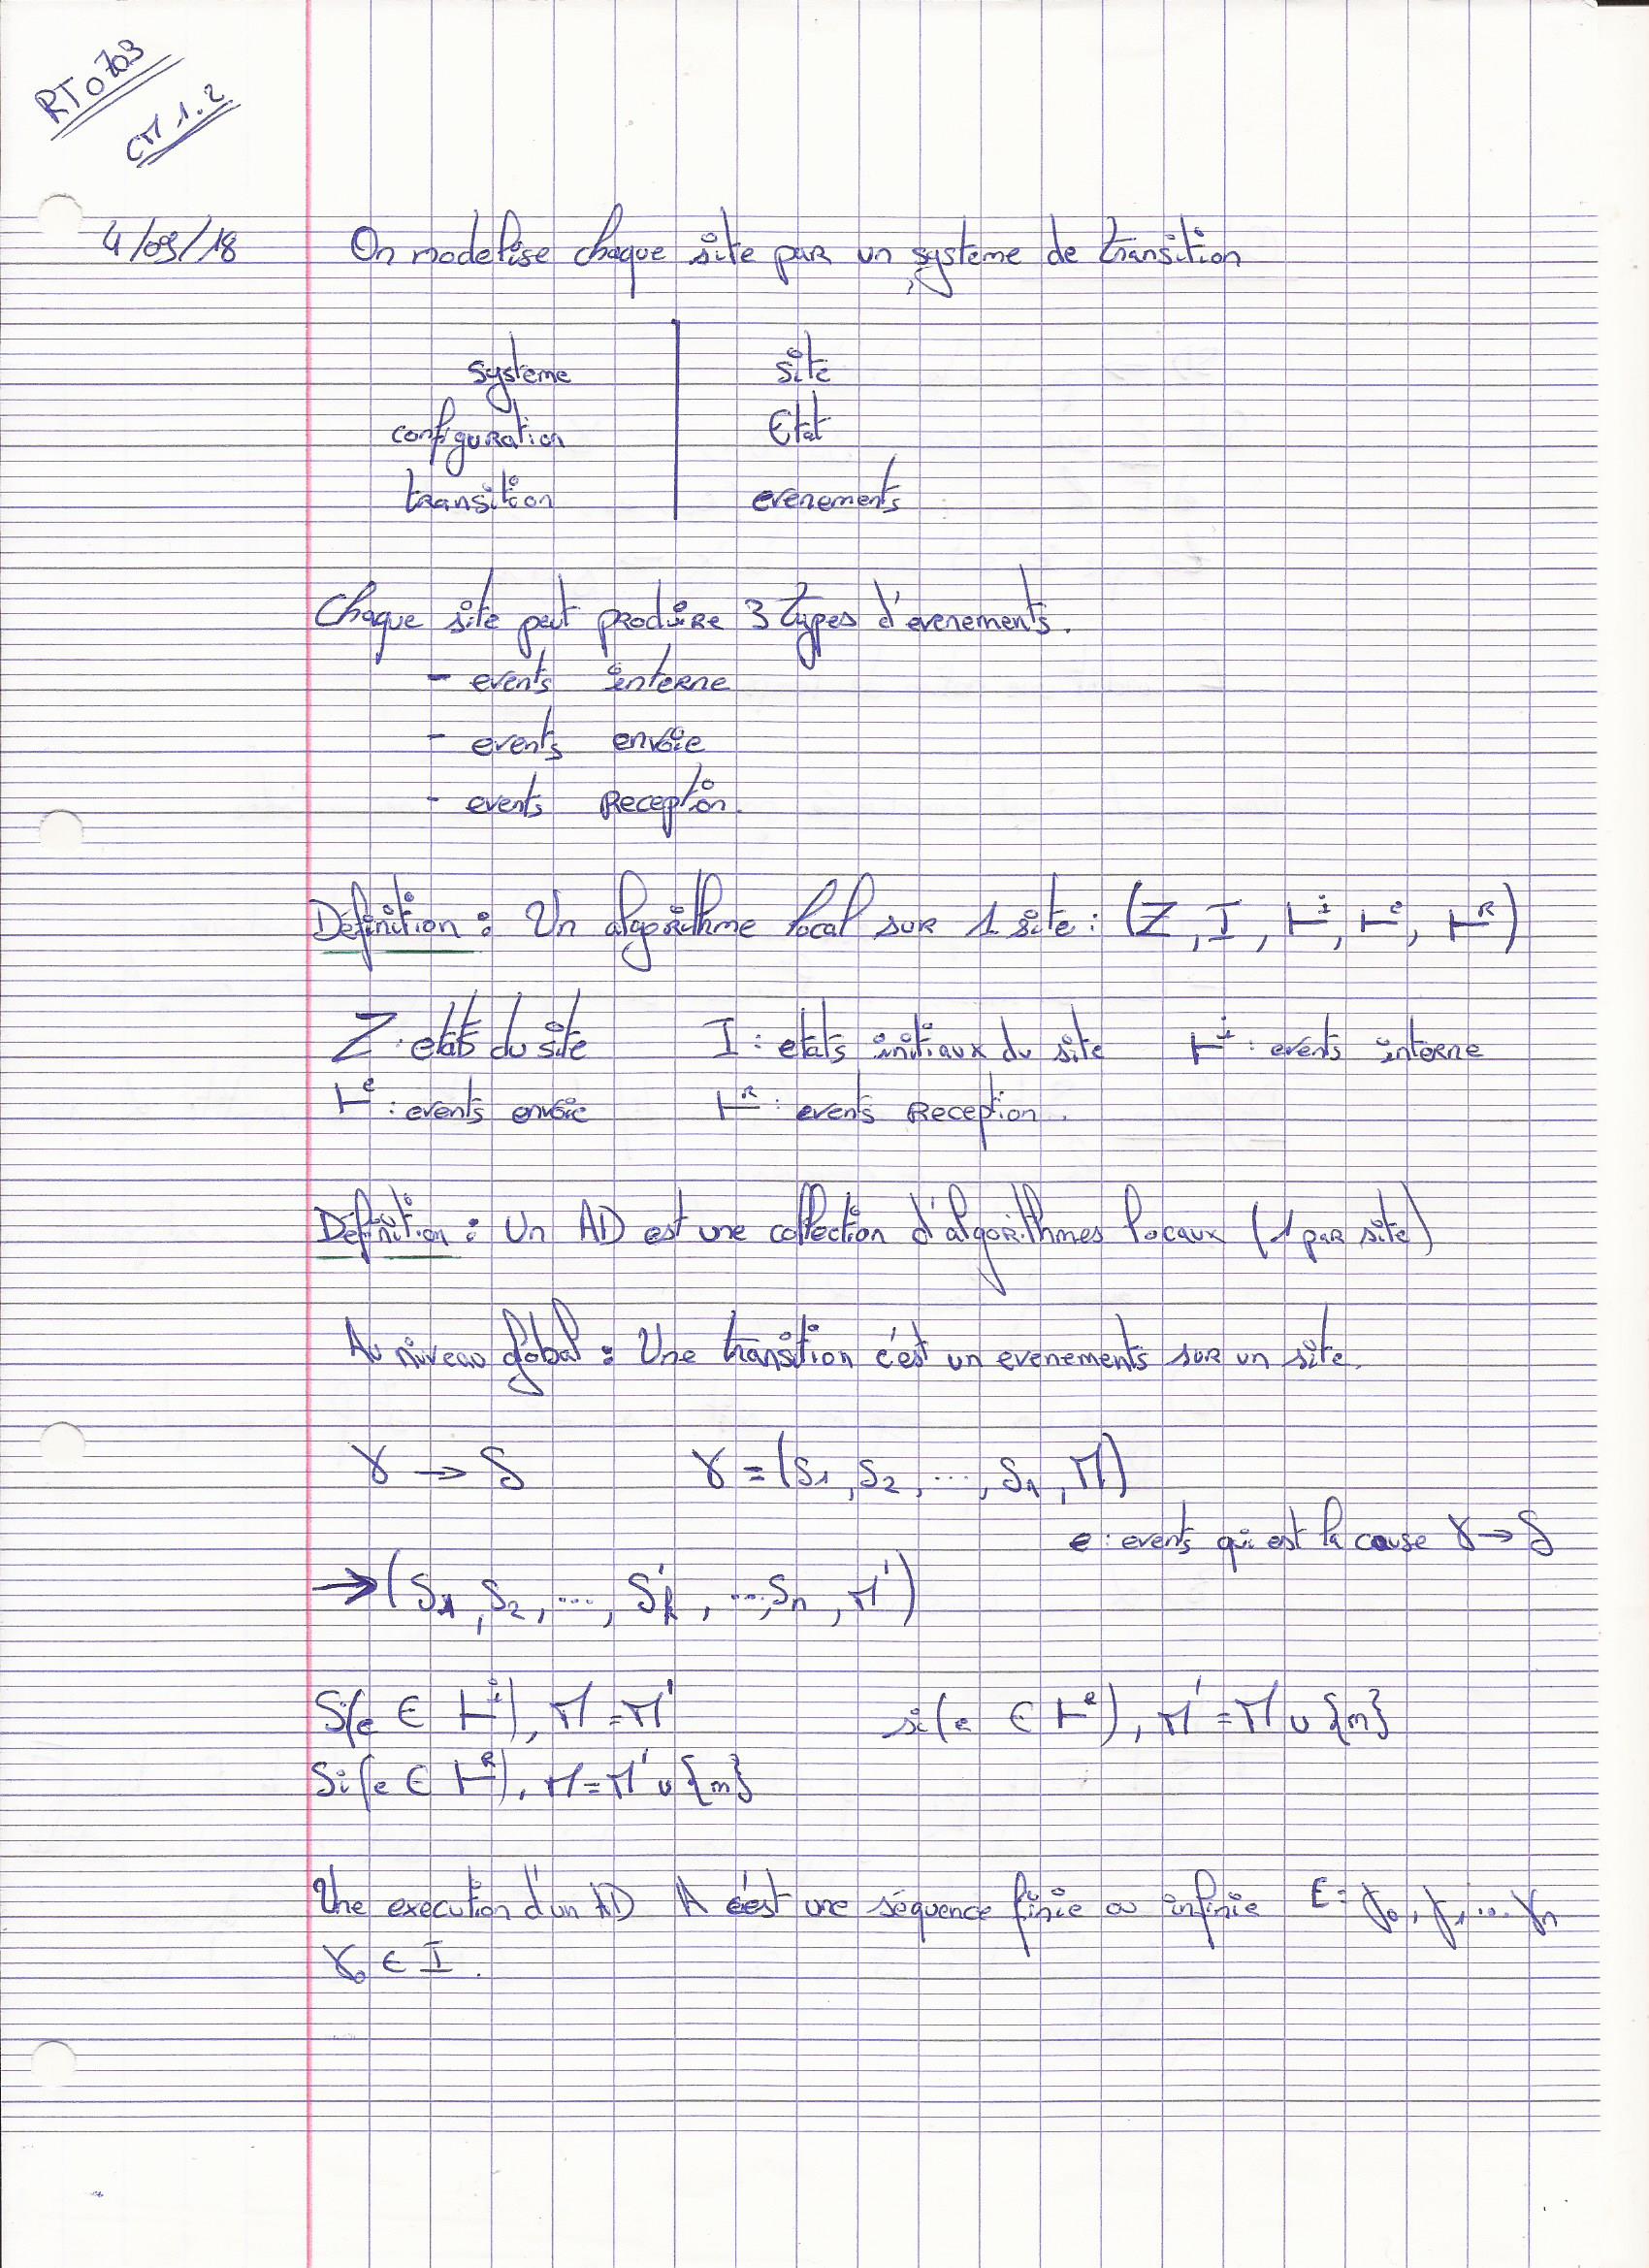 RT0703
CM 1.2
4/09/18 On modelise chaque site par un système de transition
système | site
configuration | Etat
transition | evenements
Chaque site peut produire 3 types d'evenements.
- events interne
- events envoie
- events Reception.
Définition : Un algorithme local sur 1 site : (Z, I, ⊢ⁱ, ⊢ᵉ, ⊢ᴿ)
Z : etats du site I : etats initiaux du site ⊢ⁱ : events interne
⊢ᵉ : events envoie ⊢ᴿ : events Reception.
Définition : Un AD est une collection d'algorithmes locaux (1 par site)
Au niveau global : Une transition c'est un evenements sur un site.
γ → δ γ = (s₁, s₂, ..., sₙ, M)
e : events qui est la cause γ → δ
→ (s₁, s₂, ..., s'ₖ, ..., sₙ, M')
Si(e ∈ ⊢ⁱ), M = M' si(e ∈ ⊢ᵉ), M' = M ∪ {m}
Si(e ∈ ⊢ᴿ), M = M' ∪ {m}
Une execution d'un AD A c'est une séquence finie ou infinie E = γ₀, γ₁, ... γₙ
γ₀ ∈ I.